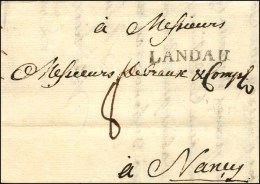 à Messieurs
LANDAU
Messieurs & Comp
8
à Nancy